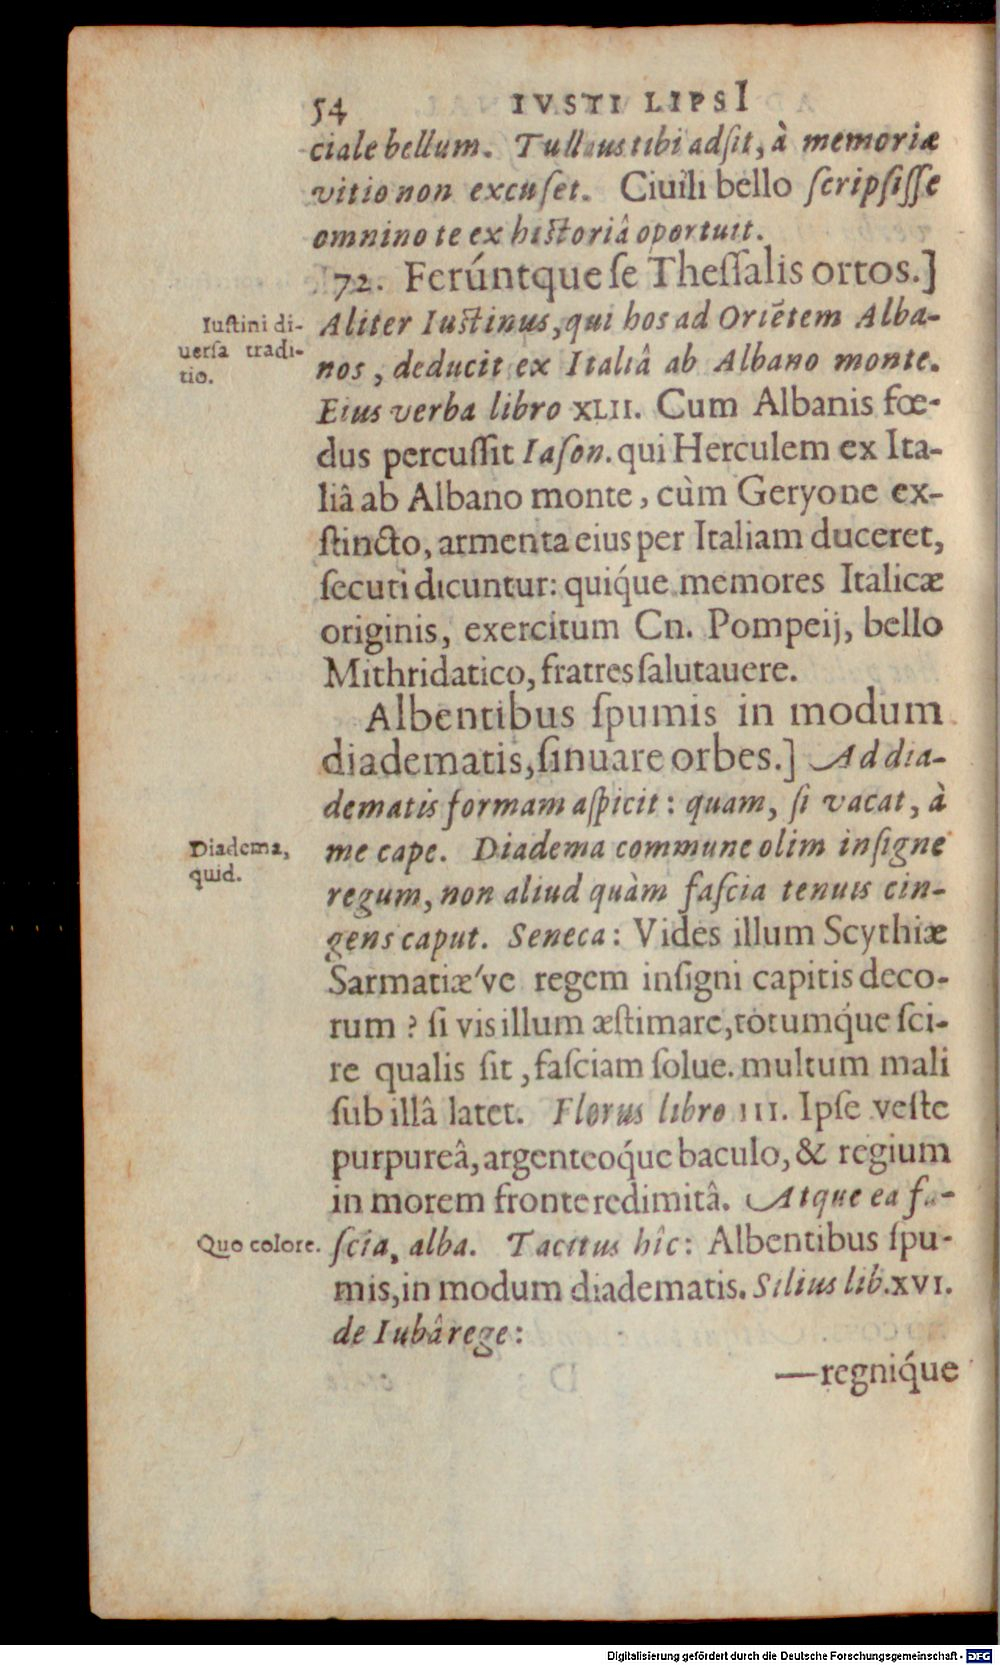 54 IVSTI LIPSI
ciale bellum. Tullius tibi adſit, à memoriæ
vitio non excuſet. Ciuili bello ſcripſiſſe
omnino te ex hiſtoriâ oportuit.
72. Ferúntque ſe Theſſalis ortos.]
Iuſtini di-
uerſa tradi-
tio.
Aliter Iuſtinus, qui hos ad Oriẽtem Alba-
nos, deducit ex Italiâ ab Albano monte.
Eius verba libro XLII. Cum Albanis fœ-
dus percuſſit Iaſon. qui Herculem ex Ita-
liâ ab Albano monte, cùm Geryone ex-
ſtincto, armenta eius per Italiam duceret,
ſecuti dicuntur: quiq́ue memores Italicæ
originis, exercitum Cn. Pompeij, bello
Mithridatico, fratres ſalutauere.
Albentibus ſpumis in modum
diadematis, ſinuare orbes.] Ad dia-
dematis formam aſpicit: quam, ſi vacat, à
Diadema,
quid.
me cape. Diadema commune olim inſigne
regum, non aliud quàm faſcia tenuis cin-
gens caput. Seneca: Vides illum Scythiæ
Sarmatiæ've regem inſigni capitis deco-
rum? ſi vis illum æſtimare, totumq́ue ſci-
re qualis ſit, faſciam ſolue. multum mali
ſub illâ latet. Florus libro III. Ipſe veſte
purpureâ, argenteoq́ue baculo, & regium
in morem fronte redimitâ. Atque ea fa-
Quo colore.
ſcia, alba. Tacitus hîc: Albentibus ſpu-
mis, in modum diadematis. Silius lib. XVI.
de Iubâ rege:
—regniq́ue
Digitalisierung gefördert durch die Deutsche Forschungsgemeinschaft - DFG